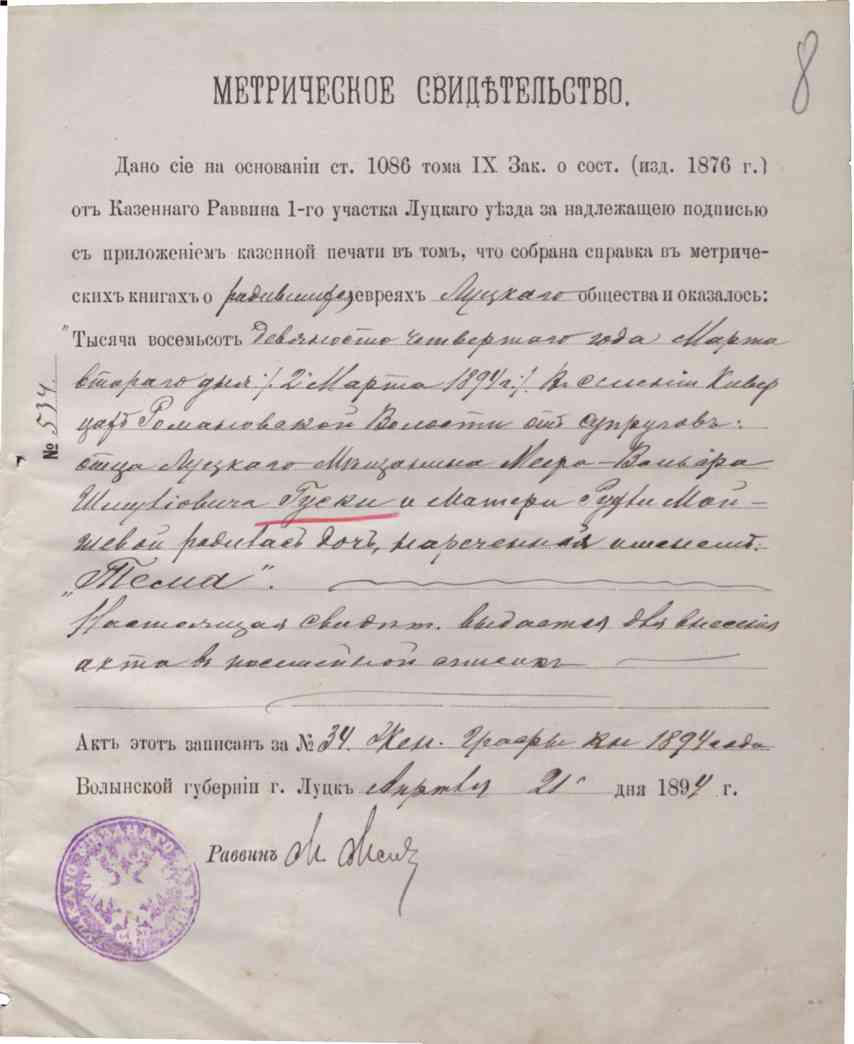 8
МЕТРИЧЕСКОЕ СВИДѢТЕЛЬСТВО.
Дано сіе на основаніи ст. 1086 тома IX Зак. о сост. (изд. 1876 г.)
отъ Казеннаго Раввина 1-го участка Луцкаго уѣзда за надлежащею подписью
съ приложеніемъ казенной печати въ томъ, что собрана справка въ метриче-
скихъ книгахъ о родившихся евреяхъ Луцкаго общества и оказалось:
"Тысяча восемьсотъ Девяносто четвертого года Марта
втораго дня ./. 2 Марта 1894 г ./. въ селеніи Кивер
цахъ Романовской Волости отъ супруговъ:
отца Луцкаго Мѣщанина Меера-Вольфа
Шмулiовича Гуски и Матери Рухли Мой-
шевой родилась дочь, нареченная именемъ
"Тема".
Настоящая свидѣт. выдается для внесенія
акта въ посемейной списокъ
№ 534
Актъ этотъ записанъ за № 34. Жен. Графы за 1894 года
Волынской губерніи г. Луцкъ Апрѣля 21 дня 1894 г.
Раввинъ М.